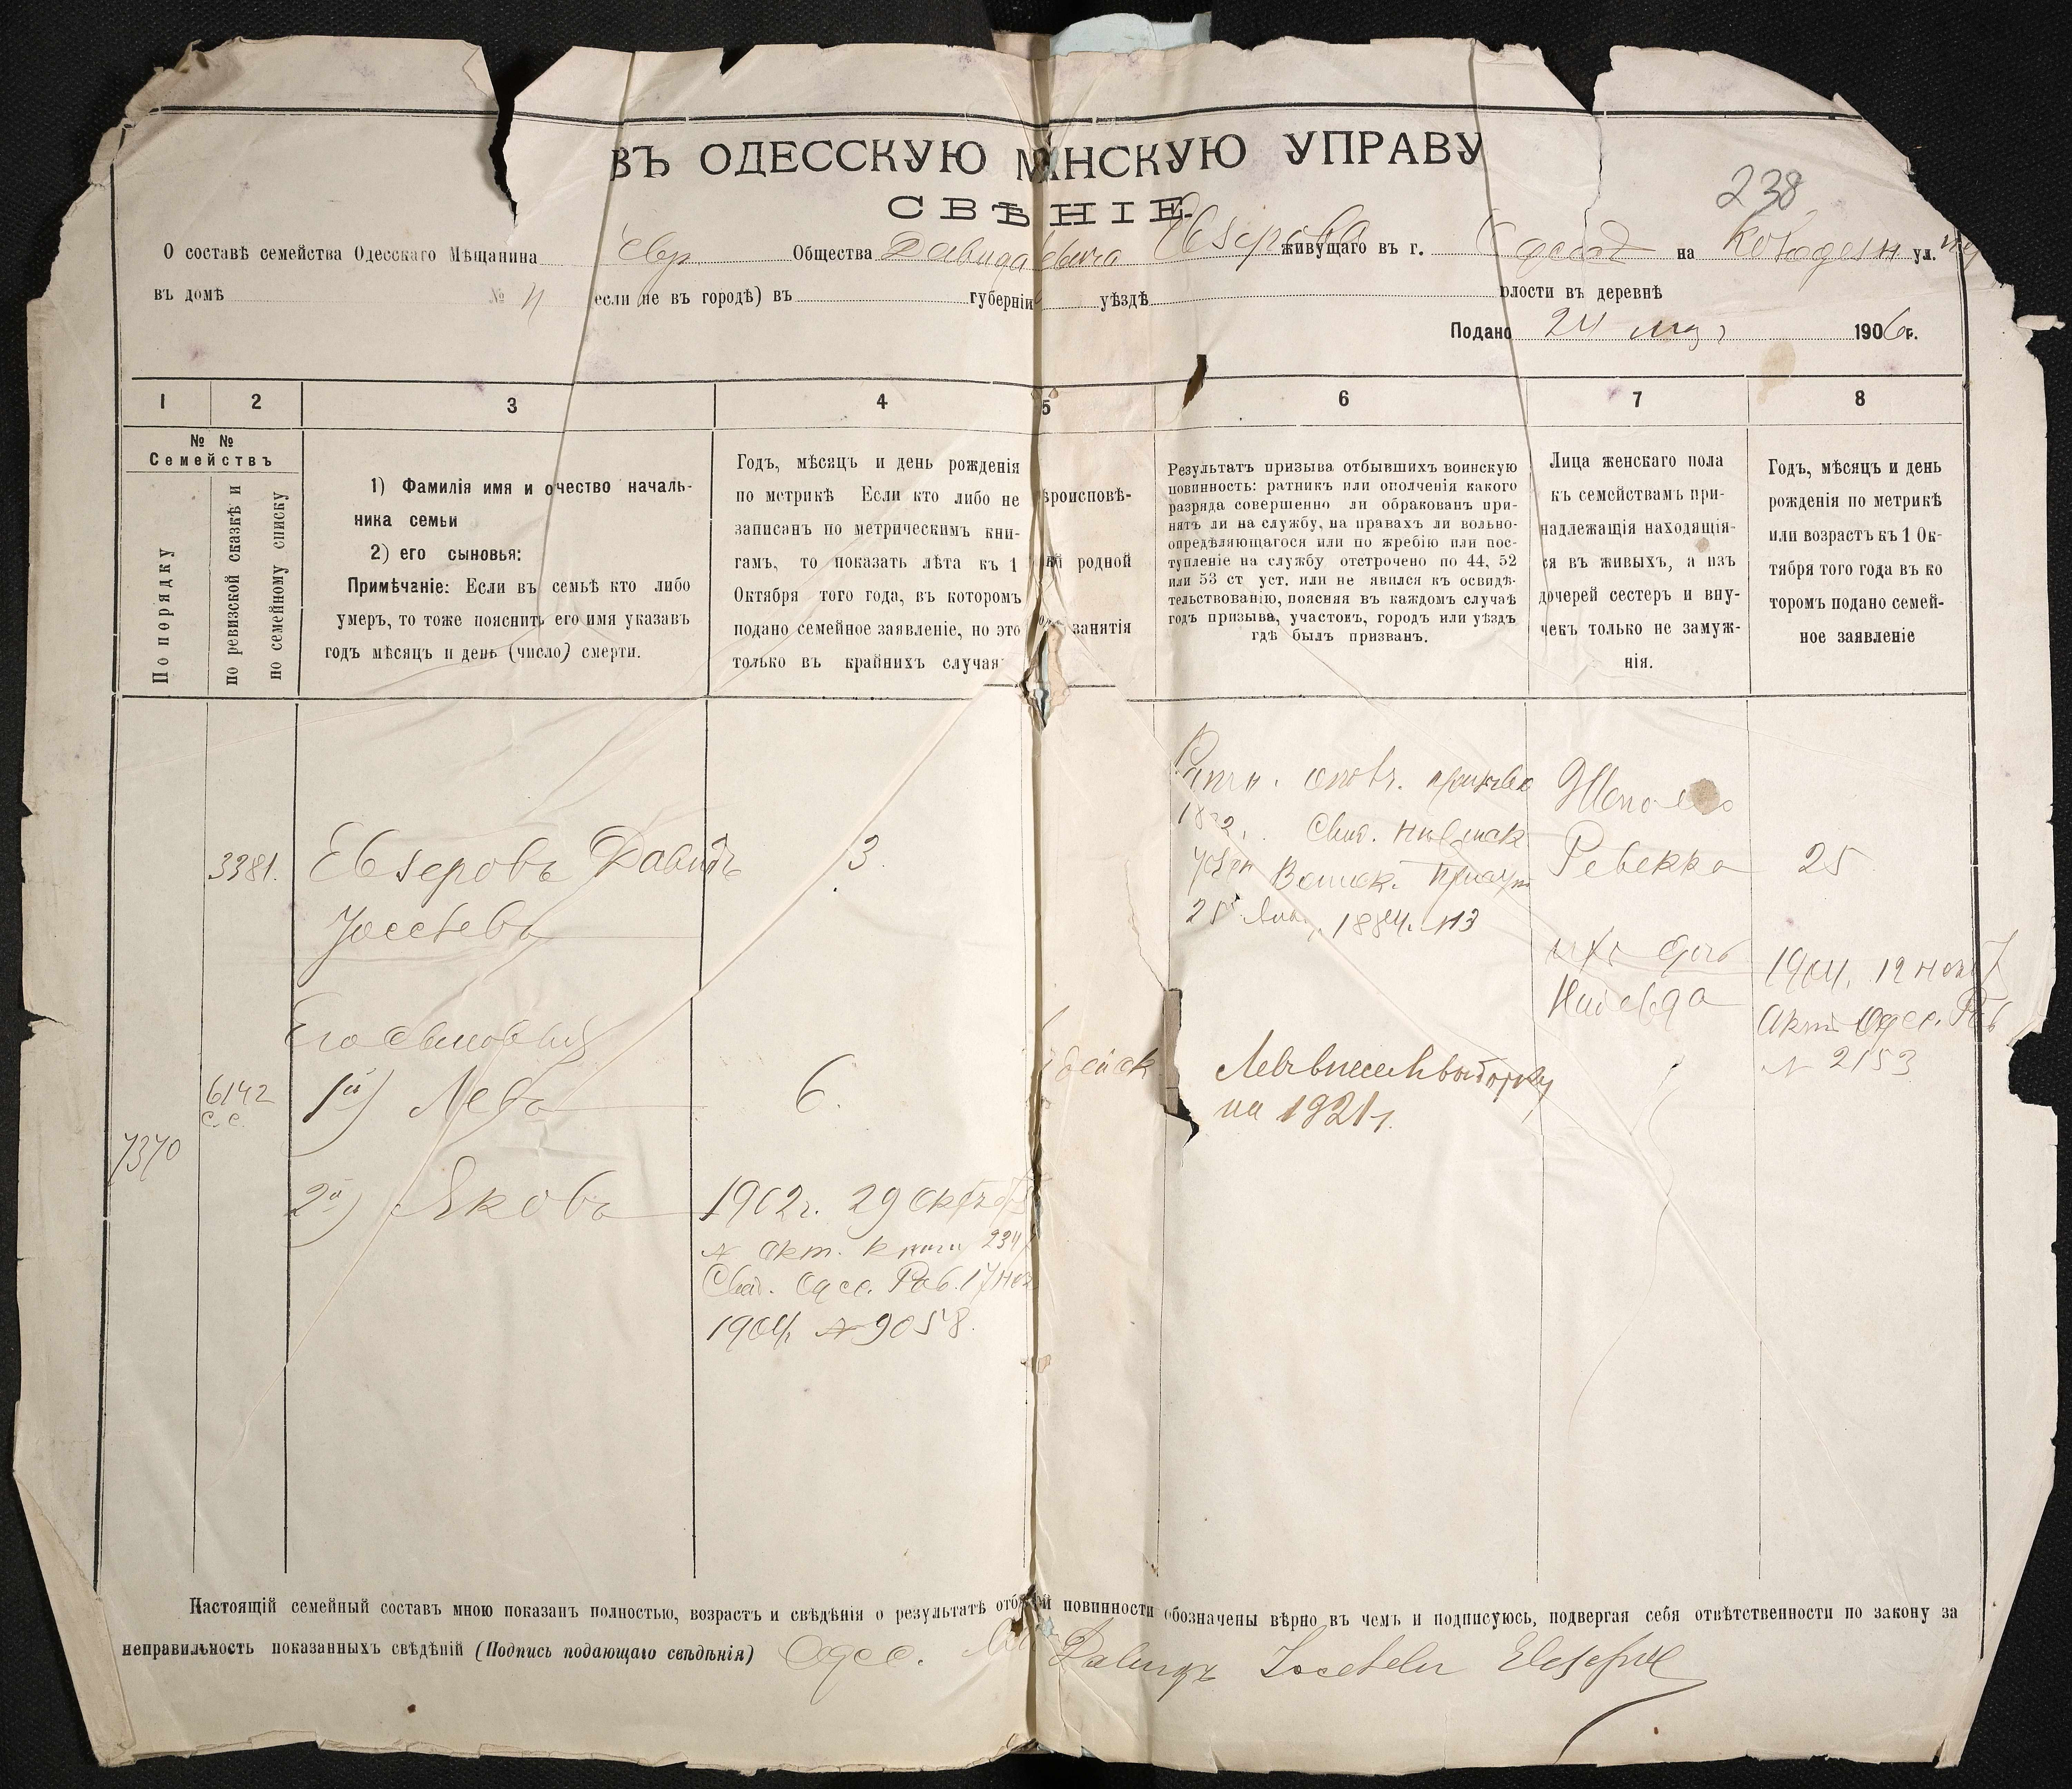 ВЪ ОДЕССКУЮ М НСКУЮ УПРАВУ
СВѢ НІЕ
238
О составѣ семейства Одесскаго Мѣщанина Евр Общества Давида Евзерова живущаго въ г. Одессѣ на ул.
въ домѣ № 11 если не въ городѣ) въ губерніи уѣздѣ олости въ деревнѣ
Подано 24 1906 г.
1 2 3 4 5 6 7 8
№ №
Семействъ
По порядку
по ревизской сказкѣ и
по семейному списку
1) Фамилія имя и очество началь-
ника семьи
2) его сыновья:
Примѣчаніе: Если въ семьѣ кто либо
умеръ, то тоже пояснить его имя указавъ
годъ мѣсяцъ и день (число) смерти.
Годъ, мѣсяцъ и день рожденія
по метрикѣ Если кто либо не
записанъ по метрическимъ кни-
гамъ, то показать лѣта къ 1
Октября того года, въ которомъ
подано семейное заявленіе, но это
только въ крайнихъ случая
ѣроисповѣ-
й родной
занятія
Результатъ призыва отбывшихъ воинскую
повинность: ратникъ или ополченія какого
разряда совершенно ли обракованъ при-
нятъ ли на службу, на правахъ ли вольно-
опредѣляющагося или по жребію или пос-
тупленіе на службу отстрочено по 44, 52
или 53 ст уст. или не явился къ освидѣ-
тельствованію, поясняя въ каждомъ случаѣ
годъ призыва, участокъ, городъ или уѣздъ
гдѣ былъ призванъ.
Лица женскаго пола
къ семействамъ при-
надлежащія находящія-
ся въ живыхъ, а изъ
дочерей сестеръ и вну-
чекъ только не замуж-
нія.
Годъ, мѣсяцъ и день
рожденія по метрикѣ
или возрастъ къ 1 Ок-
тября того года въ ко
торомъ подано семей-
ное заявленіе
3381. Евзеровъ Давидъ
Іосевъ
3
Ратн. призыва
Свид.
Воинск. Присут
25 1884. №3
Жена его
Ревекка 25
ихъ дочь
Надежда
1904. 12
Акт Одес. Раб
№ 2153
Его сыновья
6142 1й) Лева 6.
с.с.
Левъ внесенъ въ выборку
на 1921 г.
7370
2й) Яковъ 1902г. 29 Октяб
№ акт. книги 234
Свид. Одес. Раб. 17 Ноя
1904 № 9058
Настоящій семейный составъ мною показанъ полностью, возрастъ и свѣдѣнія о результатѣ отб й повинности обозначены вѣрно въ чемъ и подписуюсь, подвергая себя отвѣтственности по закону за
неправильность показанныхъ свѣдѣній (Подпись подающаго свѣдѣнія) Одес. Давидъ